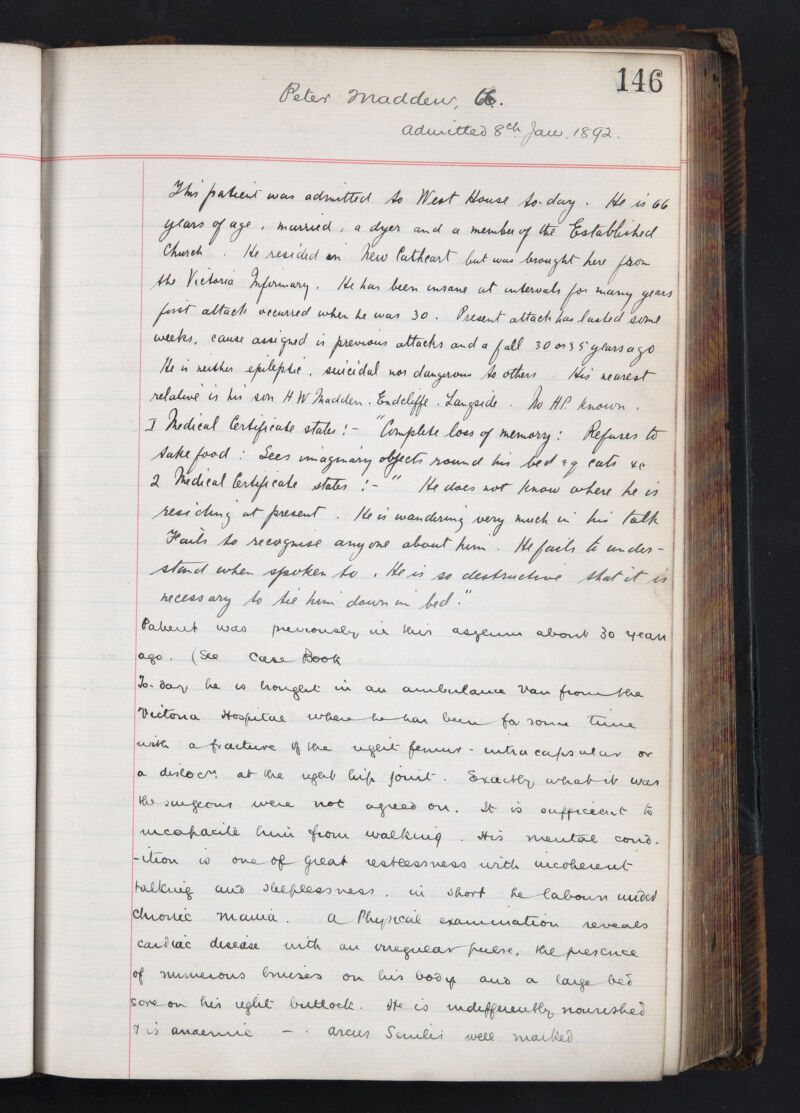 146
Peter Madden, 66.
Admitted 8th Jan. 1892.
This patient was admitted to West House to-day. He is 66
years of age, married, a dyer and a member of the Established
Church. He resided in New Cathcart but was brought here from
the Victoria Infirmary. He has been insane at intervals for many years
first attack occurred when he was 30. Present attack has lasted some
weeks, cause assigned is previous attacks and a fall 30 or 35 years ago
He is neither epileptic, suicidal nor dangerous to others. His nearest
relative is his son H W Madden. Endcliffe. Langside. No H.P. known.
I Medical Certificate states:- "Complete loss of memory: Refuses to
take food: Sees imaginary objects round his bed eg cats &c
2 Medical Certificate states:- "He does not know where he is
residing at present. He is wandering very much in his talk
Fails to recognise anyone about him. He fails to under-
stand when spoken to. He is so destructive that it is
necessary to tie him down in bed."
Patient was previously in this asylum about 30 years
ago. (See Case Book
To-day he is brought in an ambulance van from the
Victoria Hospital where he has been for some time
with a fracture of the right femur - intracapsular or
aislocn. at the right hip joint. Exactly what it was
the surgeons were not agreed on. It is sufficient to
incapacite him from walking. His mental cond-
-ition is one of great restlessness with incoherent
talking and sleeplessness. in short he labours under
chronic mania. A Physical examination reveals
cardiac disease with an irregular pulse, the presence
of numerous bruises on his body and a large bed
sore on his right buttock. He is indifferently nourished
& is anaemic - . arcus Senilis well marked.